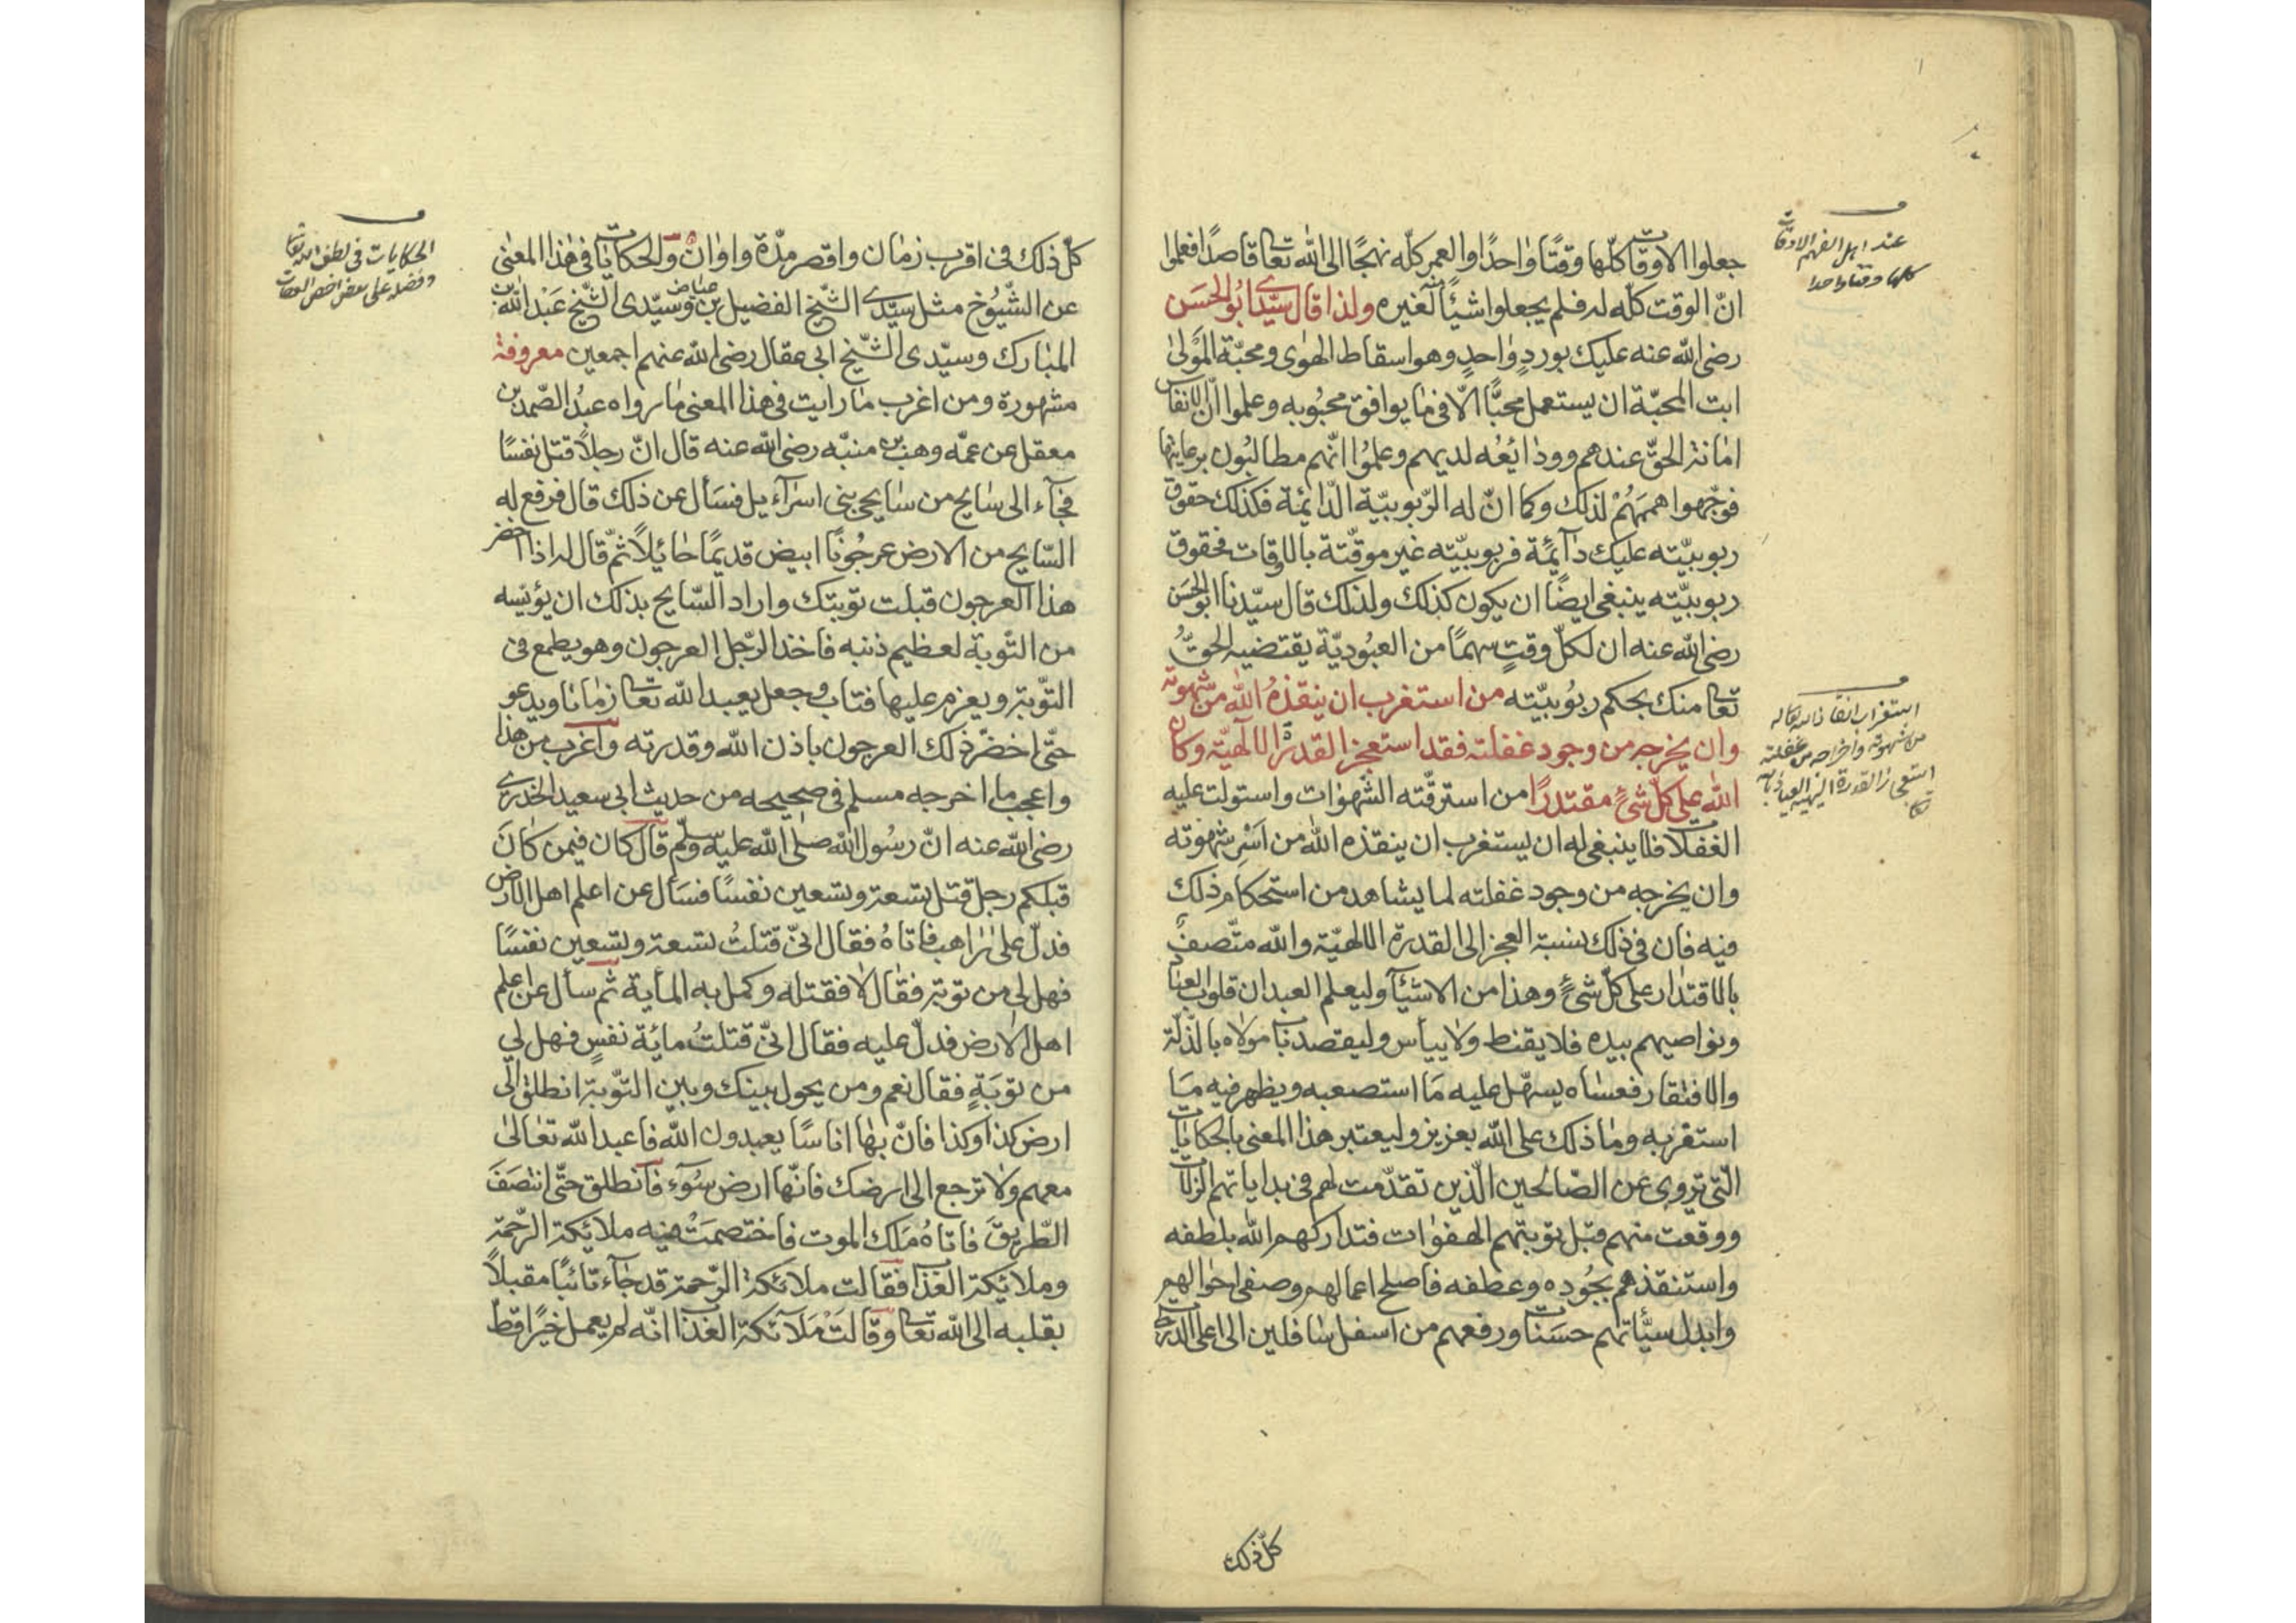 جعلوا الاوقات كلّها وقتًا واحدًا والعمر كلّه نهجًا الى الله تعالى قاصدًا فعلموا
انّ الوقت كلّه له فلم يجعلوا شيئًا منه لغيره ولذا قال سيّدى ابُو الحسَن
رضى الله عنه عليك بوردٍ واحدٍ وهو اسقاط الهوٰى ومحبّة المَولىٰ
ابت المحبّة ان يستعمل محبًّا الّا فى ما يوافق محبُوبه وعلموا انّ الانفاس
امانة الحقّ عندهم وودائعُه لديهم وعلمُوا انّهم مطالبُون برعايتها
فوجّهوا هممَهُمْ لذلك وكما انّ له الرّبوبيّة الدّائمة فكذلك حقوق
ربوبيّته عليك دآئمة فربوبيّته غير موقّتة بالاوقات فحقوق
ربوبيّته ينبغى ايضًا ان يكون كذلك ولذلك قال سيّدنا ابو الحسَن
رضى الله عنه ان لكلّ وقتٍ سهمًا من العبُوديّة يقتضيه الحقُّ
تعالى منك بحكم ربُوبيّته من استغرب ان ينقذهُ الله من شهوته
وان يخرجه من وجود غفلته فقد استعجز القدرة الالٰهيّة وكان
الله على كلّ شئ مقتدرًا من استرقّته الشهوٰات واستولت عليه
الغفلات فلا ينبغى له ان يستغرب ان ينقذه الله من اَسْرِ شهوته
وان يخرجه من وجود غفلته لما يشاهد من استحكام ذلك
فيه فان فى ذلك نسبة العجز الى القدرة الالهيّة والله متّصفٌ
بالاقتدار على كلّ شئ وهذا من الاشيآء وليعلم العبد ان قلوب العباد
ونواصيهم بيده فلا يقنط ولا ييأس وليقصد باب مولاه بالذّلّة
والافتقار فعساه يسهّل عليه مَا استصعبه ويظهر فيه مَا
استغربه وما ذلك على الله بعزيز وليعتبر هذا المعنى بالحكايات
الّتى تروى عن الصّالحين الّذين تقدّمت لهم فى بداياتهم الزلات
ووقعت منهم قبل توبتهم الهفوٰات فتداركهم الله بلطفه
واستنقذهم بجُوده وعطفه فاصلح اعمالهم وصفى احوالهم
وابدل سيّأتهم حسَنات ورفعهم من اسفل سافلين الى اعلى الدرجات
كلّ ذلك
عند اهل الفهم الاوقات
كلها وقتا واحدا
استغراب انقاذ الله تعالى له
من شهوته واخراجه من غفلته
استعجاز القدرة الالهية العياذ بالله
تعالى
كلّ ذلك فى اقرب زمان واقصر مدّة واوان والحكايات فى هٰذا المعنٰى
عن الشّيُوخ مثل سيّدى الشّيخ الفضيل بن عياض وسيّدى الشّيخ عَبْد الله بن
المبارك وسيّدى الشّيخ ابى عقال رضى الله عنهم اجمعين معروفة
مشهورة ومن اغرب ما رايت فى هذا المعنى ما رواه عبدُ الصّمد بن
معقل عن عمّه وهب بن منبّه رضى الله عنه قال انّ رجلًا قتل نفسًا
فجآء الى سايح من سايحى بنى اسرآءيل فسَأل عن ذلك قال فرفع له
السّايح من الارض عرجُونًا ابيض قديمًا حائلًا ثمّ قال له اذا اخضر
هذا العرجون قبلت توبتك واراد السّايح بذلك ان يؤيّسه
من التّوبة لعظيم ذنبه فاخذ الرّجل العرجون وهو يطمع فى
التّوبة ويعزم عليها فتاب وجعل يعبد الله تعالى زمانا ويدعو
حتّى اخضرّ ذلك العرجون باذن الله وقدرته واغرب من هذا
واعجب ما اخرجه مسلم فى صحيحه من حديث ابى سعيد الخدرى
رضى الله عنه انّ رسُول الله صلى الله عليه وسلّم قال كان فيمن كانَ
قبلكم رجل قتل تسعة وتسعين نفسًا فسَأل عن اعلم اهل الارض
فدلّ على راهب فاتاهُ فقال انّى قتلتُ تسعة وتسعين نفسًا
فهل لى من توبة فقال لا فقتله وكمل به المأية ثم سأل عن اعلم
اهل الارض فدلّ عليه فقال انّى قتلتُ مائة نفسٍ فهل لي
من توبَةٍ فقال نعم ومن يحول بينك وبين التّوبة انطلق الى
ارض كذا وكذا فانّ بها اناسًا يعبدون الله فاعبد الله تعالىٰ
معهم ولا ترجع الى ارضك فانّها ارض سُوٓء فانطلق حتّى انتصَفَ
الطّريقَ فاتاهُ مَلَك الموت فاختصمَتْ فيه ملائكة الرّحمة
وملائكة العذاب فقالت ملائكة الرّحمة قد جآء تائبًا مقبلًا
بقلبه الى الله تعالى وقالتْ مَلآئكة العذاب انّه لم يعمل خيرًا قطّ
الحكايات فى لطف الله تعالى
وفضله على بعض